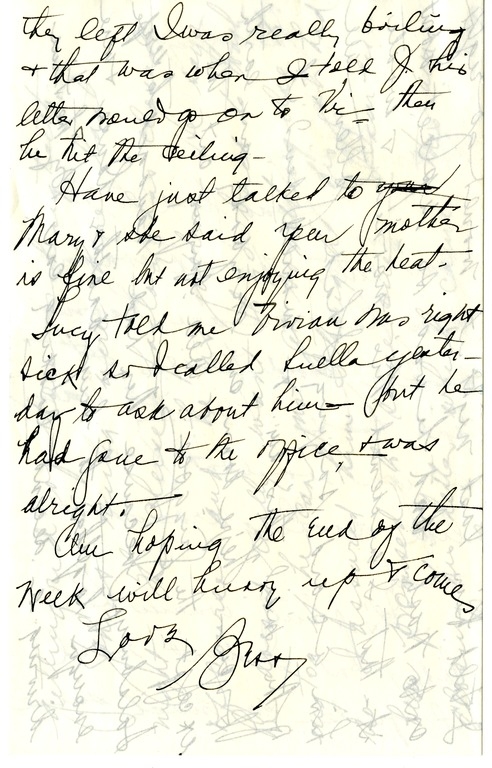 they left I was really boiling
+ that was when I told J his
letter would go on to Vi - then
he hit the ceiling -
Have just talked to your
Mary + she said your mother
is fine but not enjoying the heat -
Lucy told me Vivian was right
sick so I called Luella yester-
day to ask about him - but he
had gone to the office, + was
alright.
Am hoping the end of the
week will hurry up + comes
Love